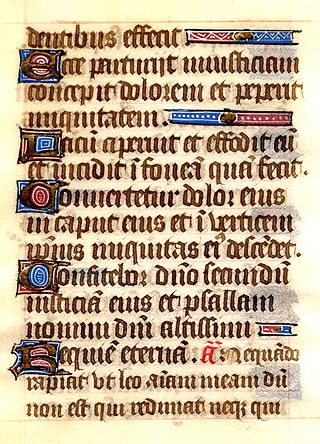 dentibus effecit
Ecce parturijt iniusticiam
concepit dolorem et peperit
iniquitatem.
Lacū aperuit et effodit eū
et incidit ī foueā quā fecit.
Conuertetur dolor eius
in caput eius et ī verticem
ipsius iniquitas ei᷒ descēdet.
Confitebor dn̄o secundū
iusticiā eius et psallam
nomini dn̄i altissimi
Requiē eternā. Añ Nequādo
rapiat vt leo aīam meam dū
non est qui redimat neqz qui